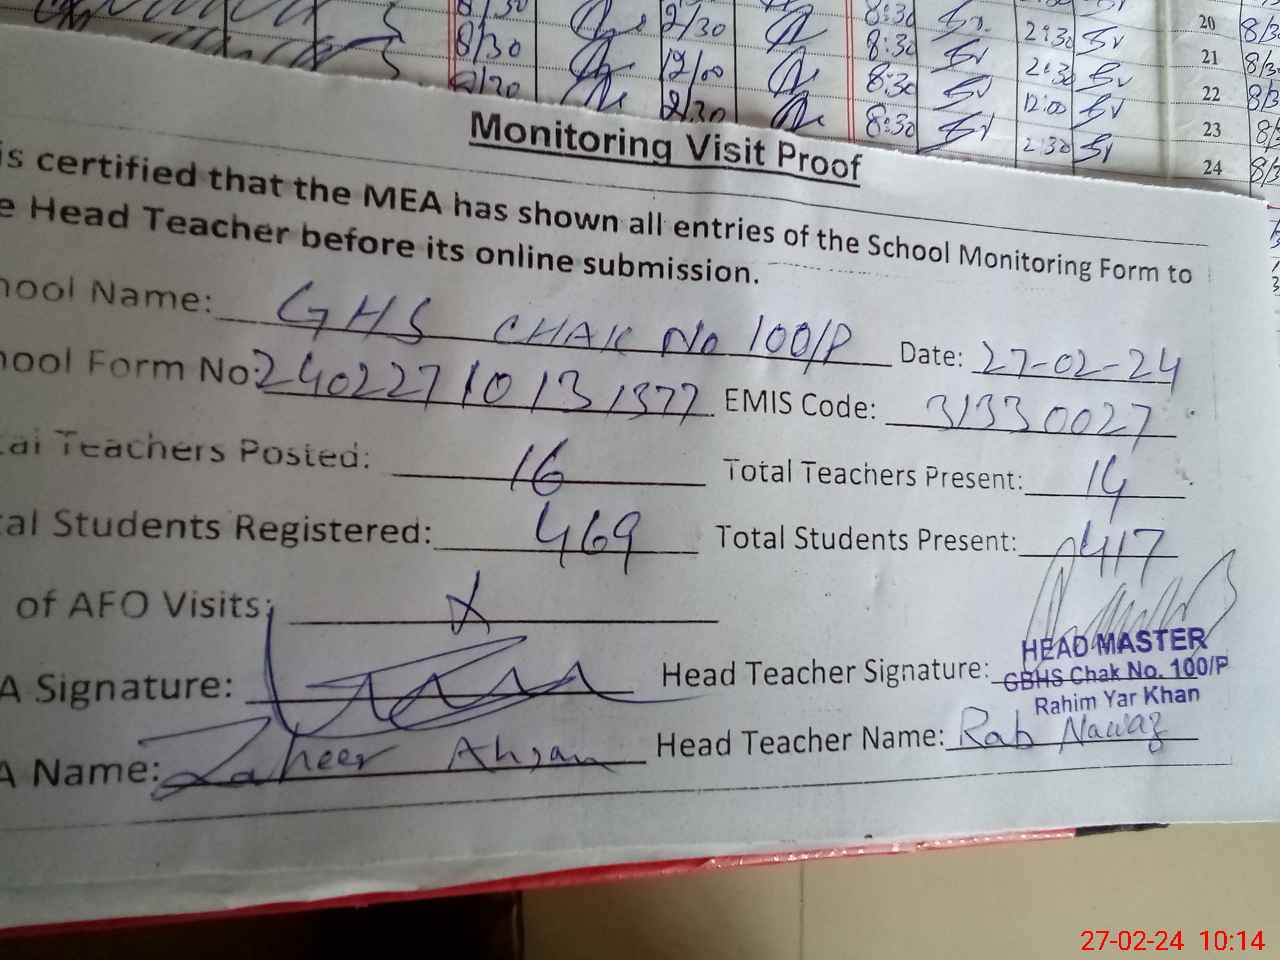 8/30 2/30 8:30 2:30 20
8/30 12/00 8:30 2:30 21 8/3
2/30 8:30 12:00 22 8/3
8:30 2:30 23 8/
24 8/3
Monitoring Visit Proof
is certified that the MEA has shown all entries of the School Monitoring Form to
e Head Teacher before its online submission.
hool Name: GHS CHAK No 100/P Date: 27-02-24
hool Form No: 24022710131377 EMIS Code: 31330027
tal Teachers Posted: 16 Total Teachers Present: 14
tal Students Registered: 469 Total Students Present: 417
of AFO Visits: X
A Signature: Head Teacher Signature: HEAD MASTER
GBHS Chak No. 100/P
Rahim Yar Khan
A Name: Zaheer Ahsan Head Teacher Name: Rab Nawaz
27-02-24 10:14